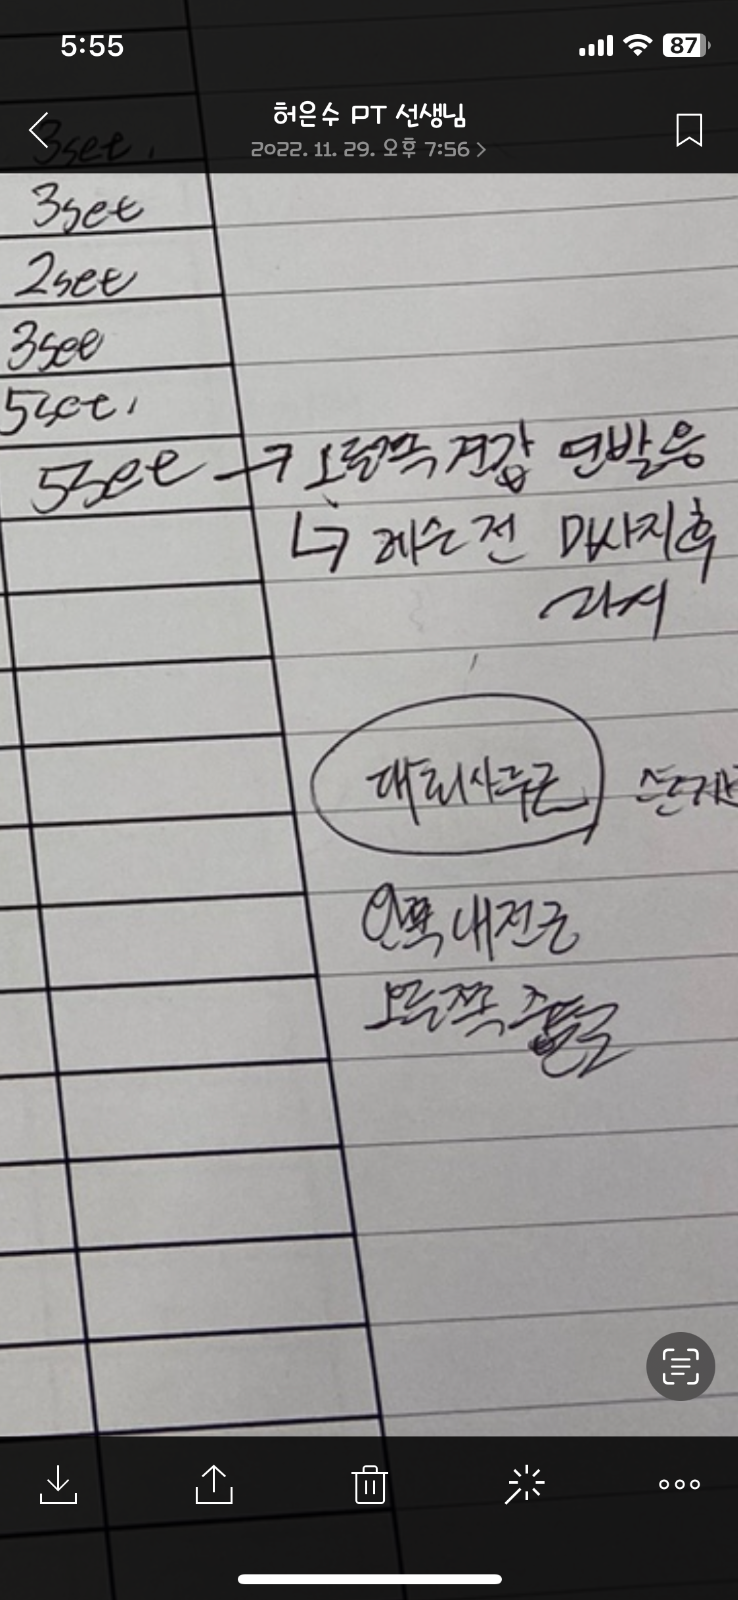 5:55
87
허은수 PT 선생님
2022. 11. 29. 오후 7:56
3set.
3set
2set
3set
5set.
5set → 오른쪽 견갑
↳ 레슨 전 마사지 후
대퇴사두근
안쪽 내전근
오른쪽